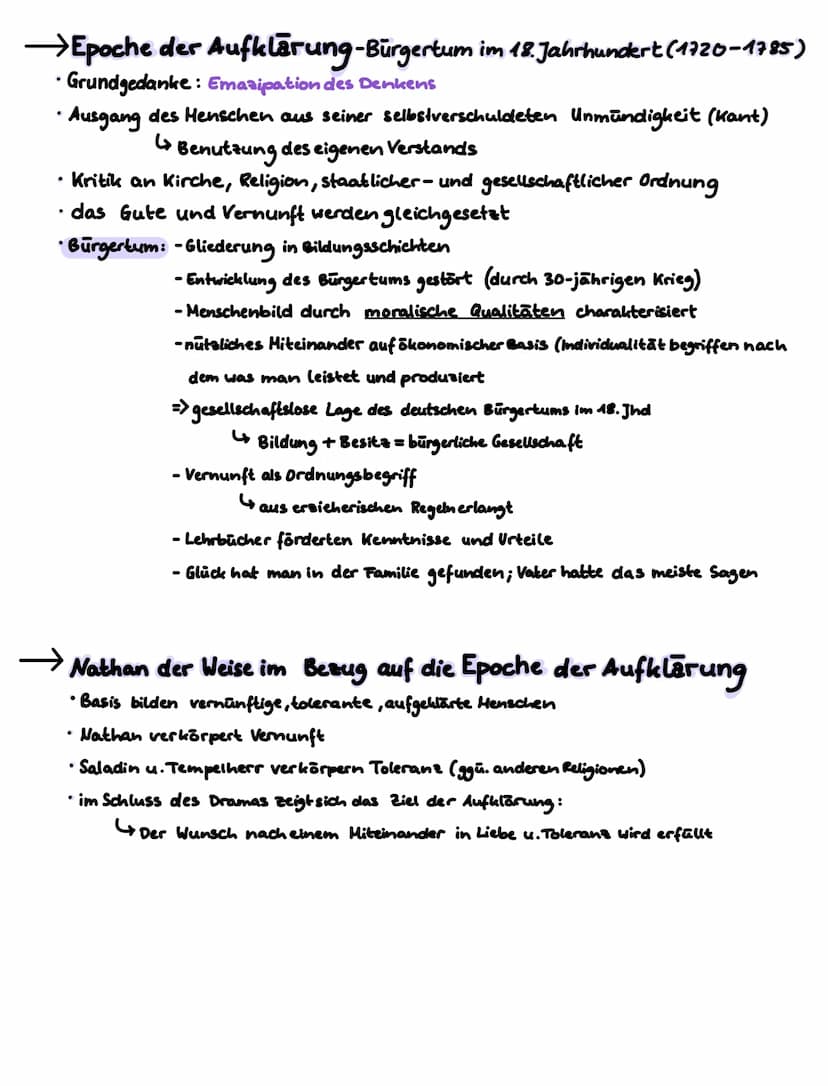 → Epoche der Aufklärung - Bürgertum im 18. Jahrhundert (1720-1785)
· Grundgedanke: Emazipation des Denkens
· Ausgang des Menschen aus seiner selbstverschuldeten Unmündigkeit (Kant)
↳ Benutzung des eigenen Verstands
· Kritik an Kirche, Religion, staatlicher- und gesellschaftlicher Ordnung
· das Gute und Vernunft werden gleichgesetzt
· Bürgertum: - Gliederung in Bildungsschichten
- Entwicklung des Bürgertums gestört (durch 30-jährigen Krieg)
- Menschenbild durch moralische Qualitäten charakterisiert
- nützliches Miteinander auf ökonomischer Basis (Individualität begriffen nach
dem was man leistet und produziert
=> gesellschaftslose Lage des deutschen Bürgertums im 18. Jhd
↳ Bildung + Besitz = bürgerliche Gesellschaft
- Vernunft als Ordnungsbegriff
↳ aus erzieherischen Regeln erlangt
- Lehrbücher förderten Kenntnisse und Urteile
- Glück hat man in der Familie gefunden; Vater hatte das meiste Sagen
→ Nathan der Weise im Bezug auf die Epoche der Aufklärung
· Basis bilden vernünftige, tolerante, aufgeklärte Menschen
· Nathan verkörpert Vernunft
· Saladin u. Tempelherr verkörpern Toleranz (ggü. anderen Religionen)
· im Schluss des Dramas zeigt sich das Ziel der Aufklärung:
↳ Der Wunsch nach einem Miteinander in Liebe u. Toleranz wird erfüllt